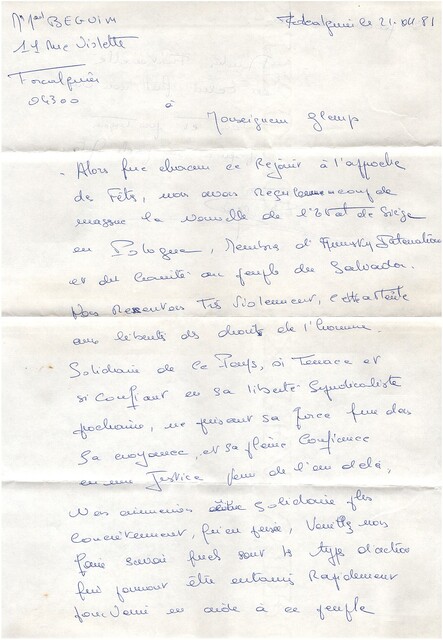 BEGUIN
Forcalquier le 21.
11 Rue Violette
Forcalquier
04300
à
Monseigneur Glemp
Alors que chacun ce Réjouit à l'approche
de Fêts, nous avons Reçu
la nouvelle de l'Etat de Siège
en Pologne, Membres d'Amnesty
et du Comité au peuple du Salvador.
Nous Ressentons Très Violemment, cette atteinte
aux libertés des droits de l'homme.
Solidaire de Ce Pays, si Tenace et
si Confiant en sa liberté Syndicaliste
prochaine, ne puisant sa force que dans
Sa croyance, et sa pleine Confiance
en une Justice Venu de l'au delà,
Nous aimerions être Solidaire plus
Concrètement, qu'en pensé, Veuillez nous
faire savoir quels sont le type d'action
qui pourrait être entamés Rapidement
pour Venir en aide à ce peuple